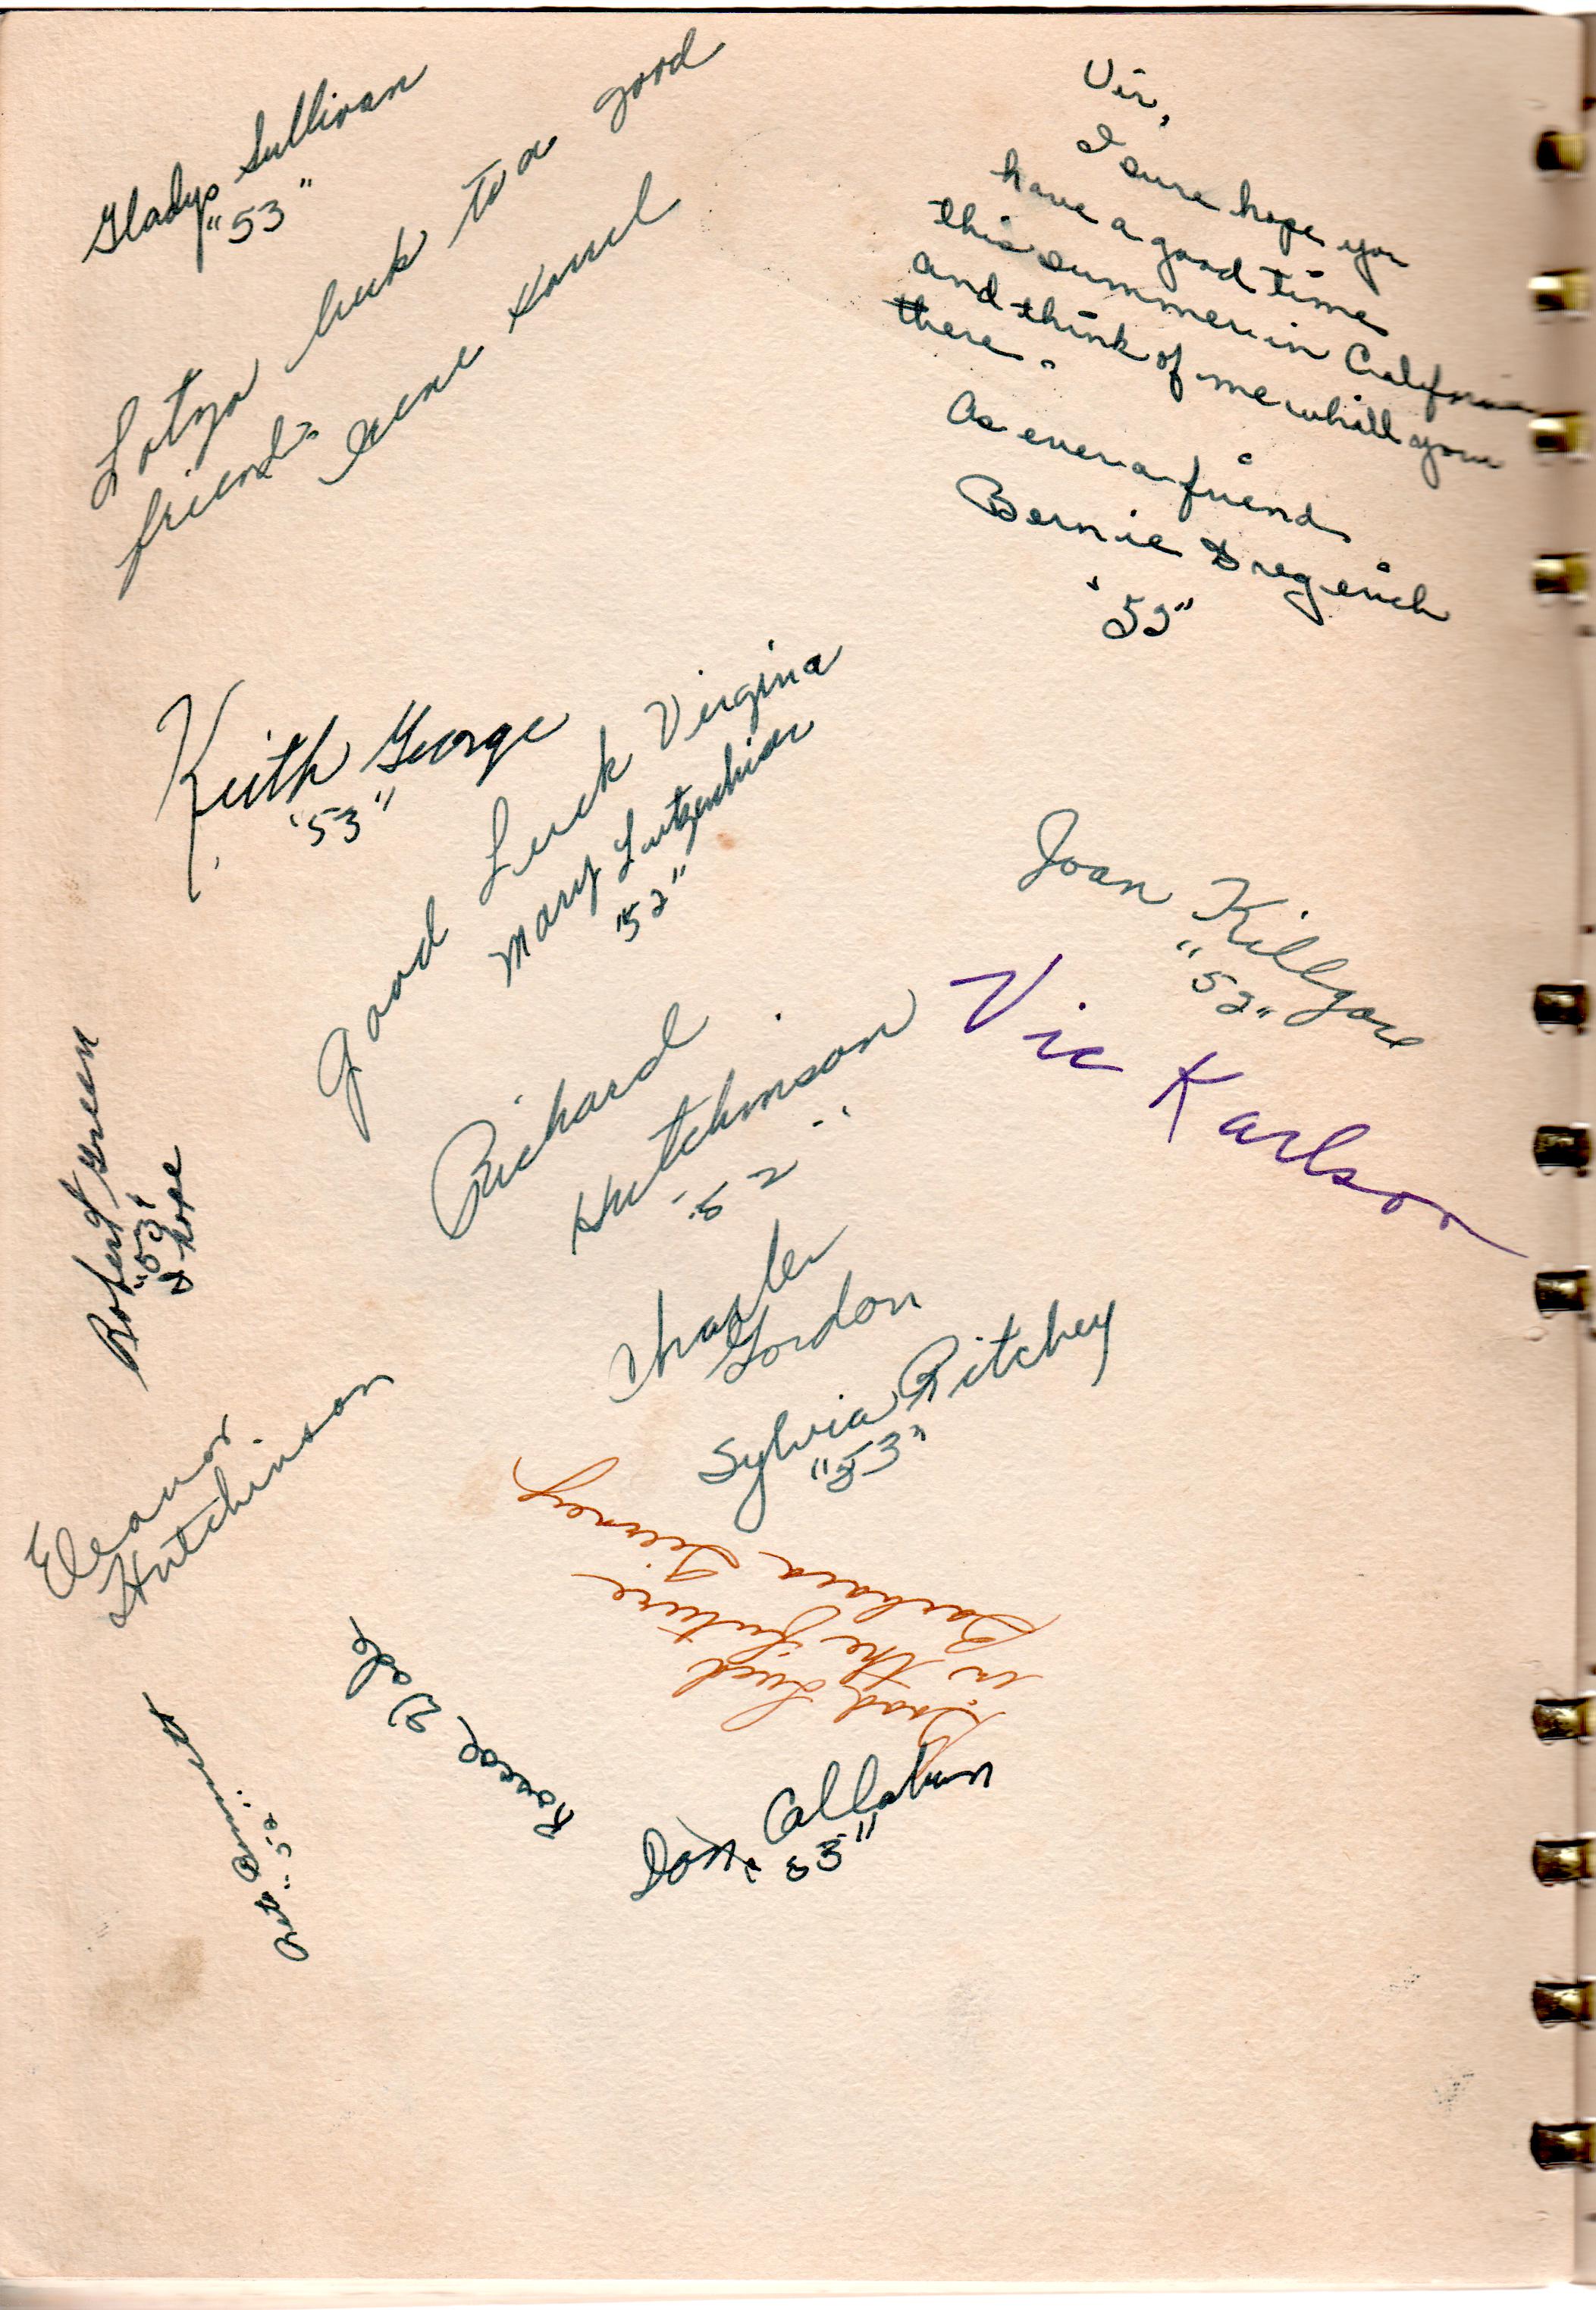 Gladys Sullivan
"53"
Lotza luck to a good
friend =
Irene
Vir,
I sure hope you
have a good time
this summer in California
and think of me whill your
there.
As ever a friend
Bernie
'52"
Keith George
'53"
Good Luck Virgina
Mary
'52"
Joan Killgore
"52"
Vic Karlson
Richard
Hutchinson
'52"
Robert Green
"53"
I hope
Charles
Gordon
Sylvia Ritchey
"53"
Eleanor
Hutchinson
Good Luck
in the future
Barbara Tierney
Roscoe
Bennett
"52"
Don Callahan
"53"